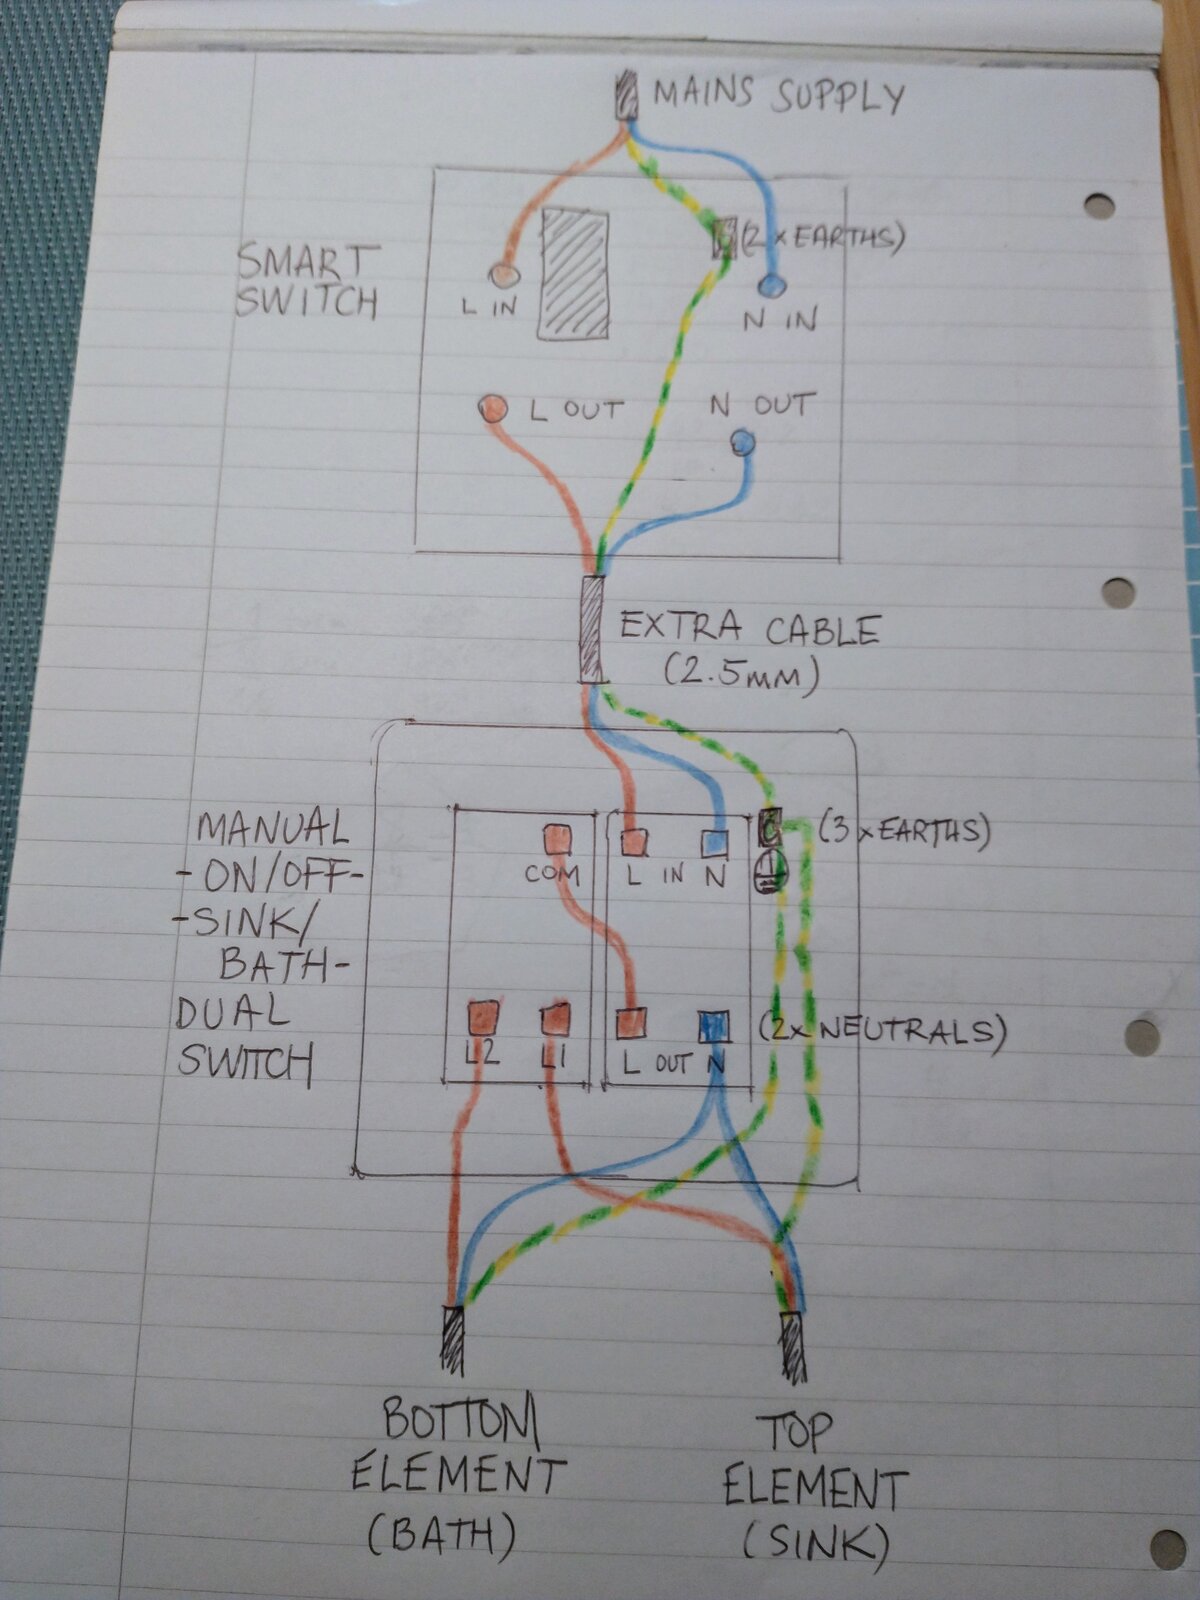 MAINS SUPPLY
SMART
SWITCH
(2 x EARTHS)
L IN
N IN
L OUT
N OUT
EXTRA CABLE
(2.5mm)
MANUAL
-ON/OFF-
-SINK/
BATH-
DUAL
SWITCH
(3 x EARTHS)
COM
L IN N
(2x NEUTRALS)
L2
L1
L OUT N
BOTTOM
ELEMENT
(BATH)
TOP
ELEMENT
(SINK)